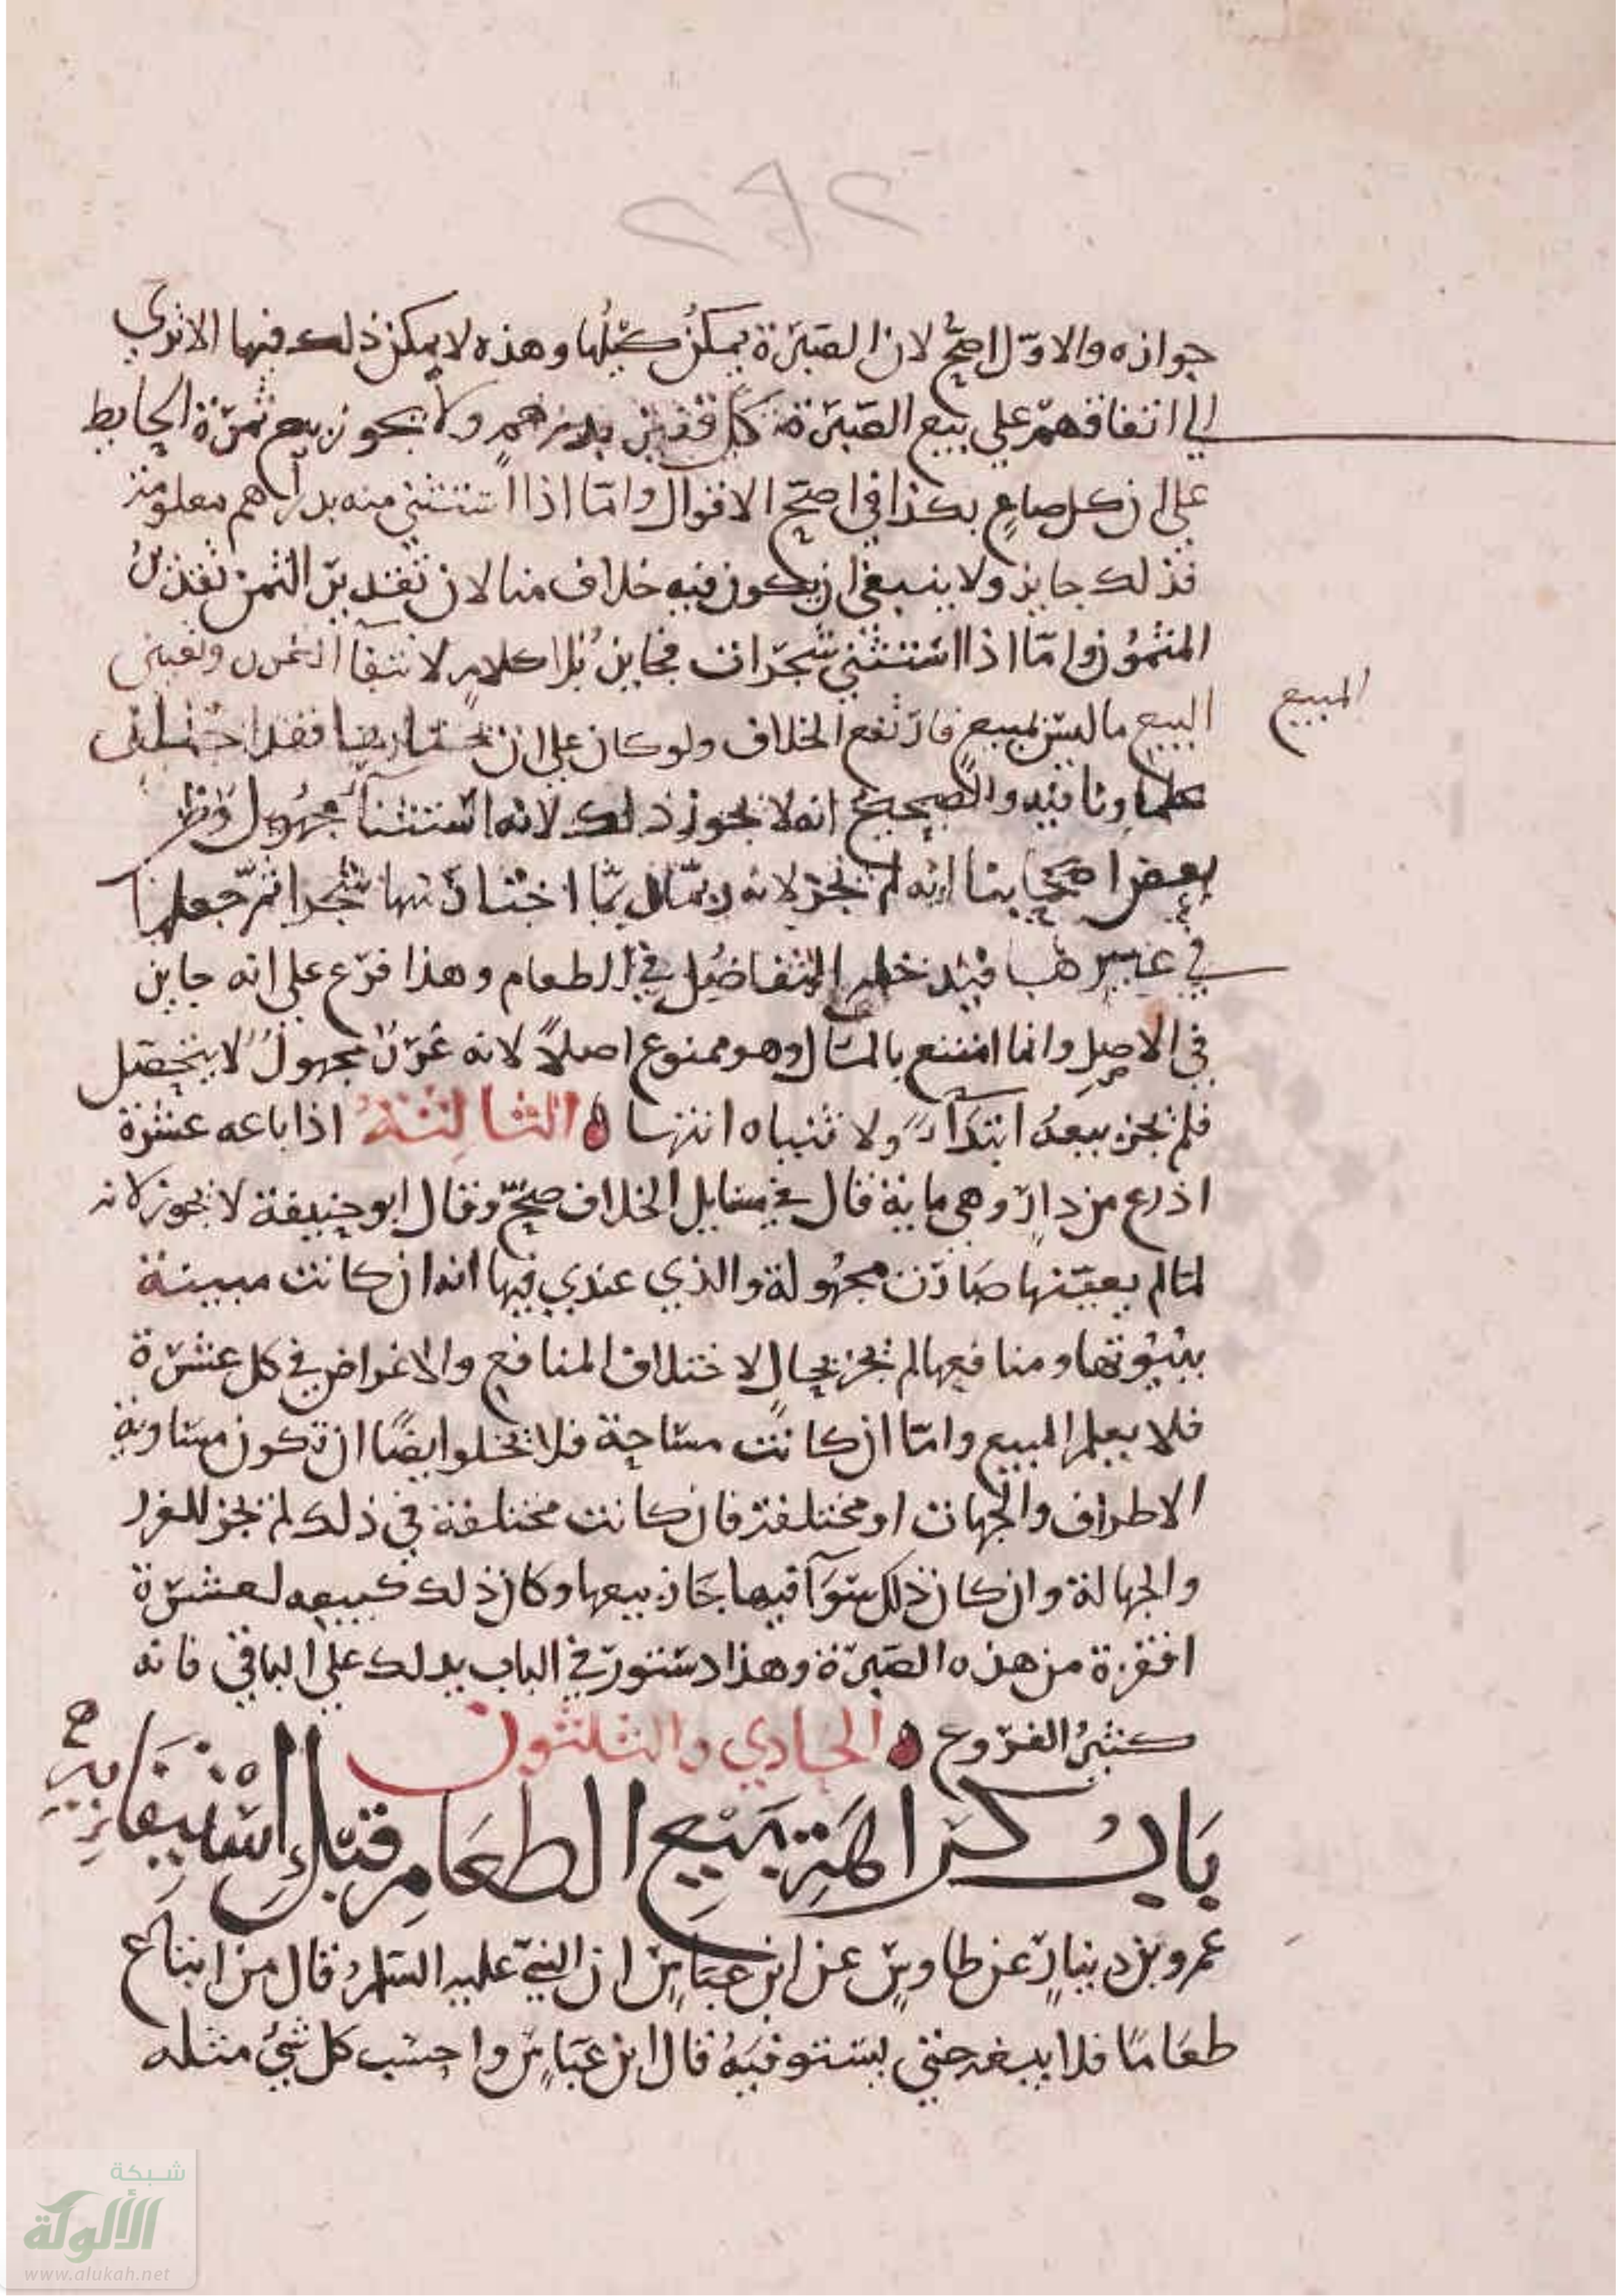 ٢٩٢
جوازه والاول اصح لان الصبرة يمكن كيلها وهذه لا يمكن ذلك فيها الا تري
الي اتفاقهم علي بيع الصبرة كل قفيز بدرهم ولا يجوز بيع ثمرة الحايط
علي ان كل صاع بكذا في اصح الاقوال واما اذا استثني منه بدراهم معلومة
فذلك جايز ولا ينبغي ان يكون فيه خلاف منا لان تقدير الثمن تقدير
المثمون واما اذا استثني شجرات فجايز بلا كلام لانتفا الغرر وتعيين
البيع ما ليس بمبيع فارتفع الخلاف ولو كان علي ان يختارها فقد اختلف
المبيع
علماونا فيه والصحيح انه لا يجوز ذلك لانه استثنا مجهول وظن
بعض اصحابنا انه لم يجز لانه ربما اختار منها شجرا ثم جعلها
في غيرها فيدخله التفاضل في الطعام وهذا فرع علي انه جايز
في الاصل وانما امتنع بالمال وهو ممنوع اصلا لانه غرر مجهول لا يتحصل
فلم يجز بيعه ابتدآ ولا ثنياه انتها الثالثة اذا باعه عشرة
اذرع من دار وهي ماية قال في مسايل الخلاف صح وقال ابو حنيفة لا يجوز لانه
لما لم يعينها صارت مجهولة والذي عندي فيها انه ان كانت مبينة
ببيوتها ومنافعها لم يجز بحال لاختلاف المنافع والاغراض في كل عشرة
فلا يعلم المبيع واما ان كانت مساحة فلا يخلوا ايضا ان تكون مساوية
الاطراف والجهات او مختلفة فان كانت مختلفة في ذلك لم يجز للغرر
والجهالة وان كان ذلك سوآ فيها جاز بيعها وكان ذلك كبيعه لعشرة
اقفزة من هذه الصبرة وهذا دستور في الباب يدلك علي الباقي فانه
كثير الفروع الحادي والثلثون
باب كراهية بيع الطعام قبل استيفايه
عمرو بن دينار عن طاوس عن ابن عباس ان النبي عليه السلم قال من ابتاع
طعاما فلا يبعه حتي يستوفيه قال ابن عباس واحسب كل شي مثله
شبكة
الألوكة
www.alukah.net